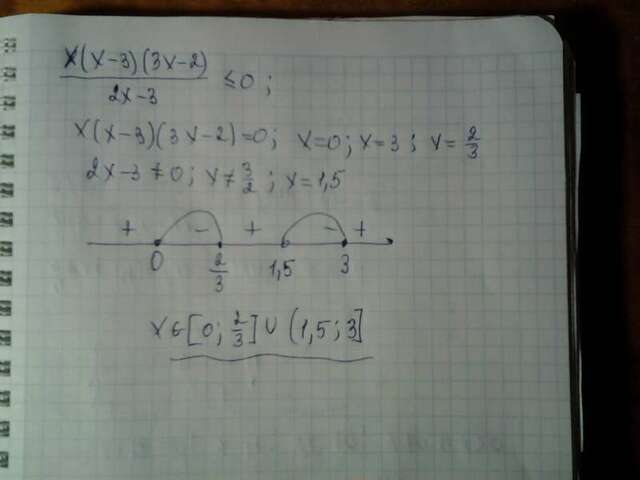 x(x-3)(3x-2)
2x-3
≤0;
x(x-3)(3x-2)=0; x=0; x=3; x=2/3
2x-3≠0; x≠3/2; x=1,5
+ - + - +
0 2/3 1,5 3
x∈[0; 2/3]∪(1,5; 3]